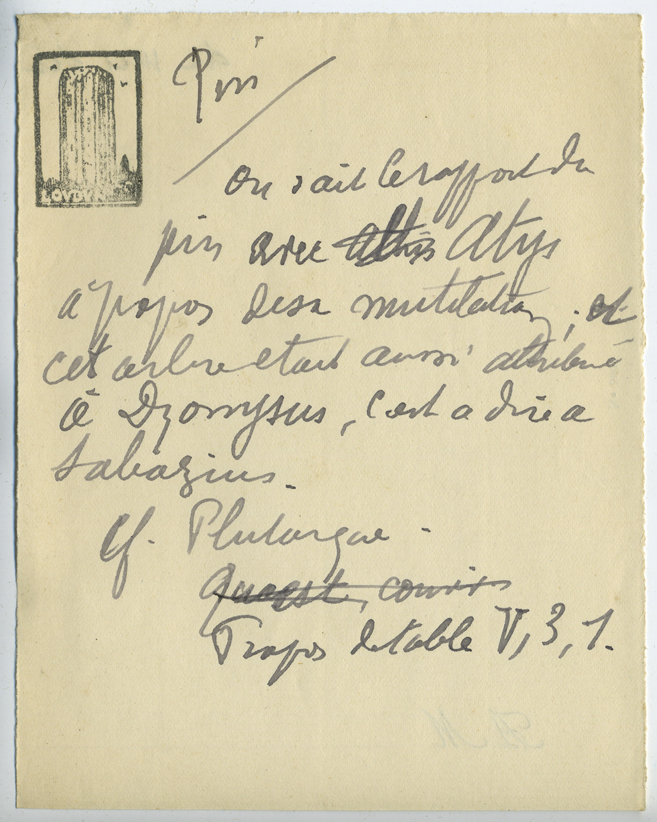 Pin
On sait le rapport du
pin avec Attis Atys
à propos de sa mutilation ; et
cet arbre etait aussi attribué
à Dyonysus, c'est a dire a
Sabazius.
cf. Plutarque.
Quaest, conviv
Propos de table V, 3, 1.